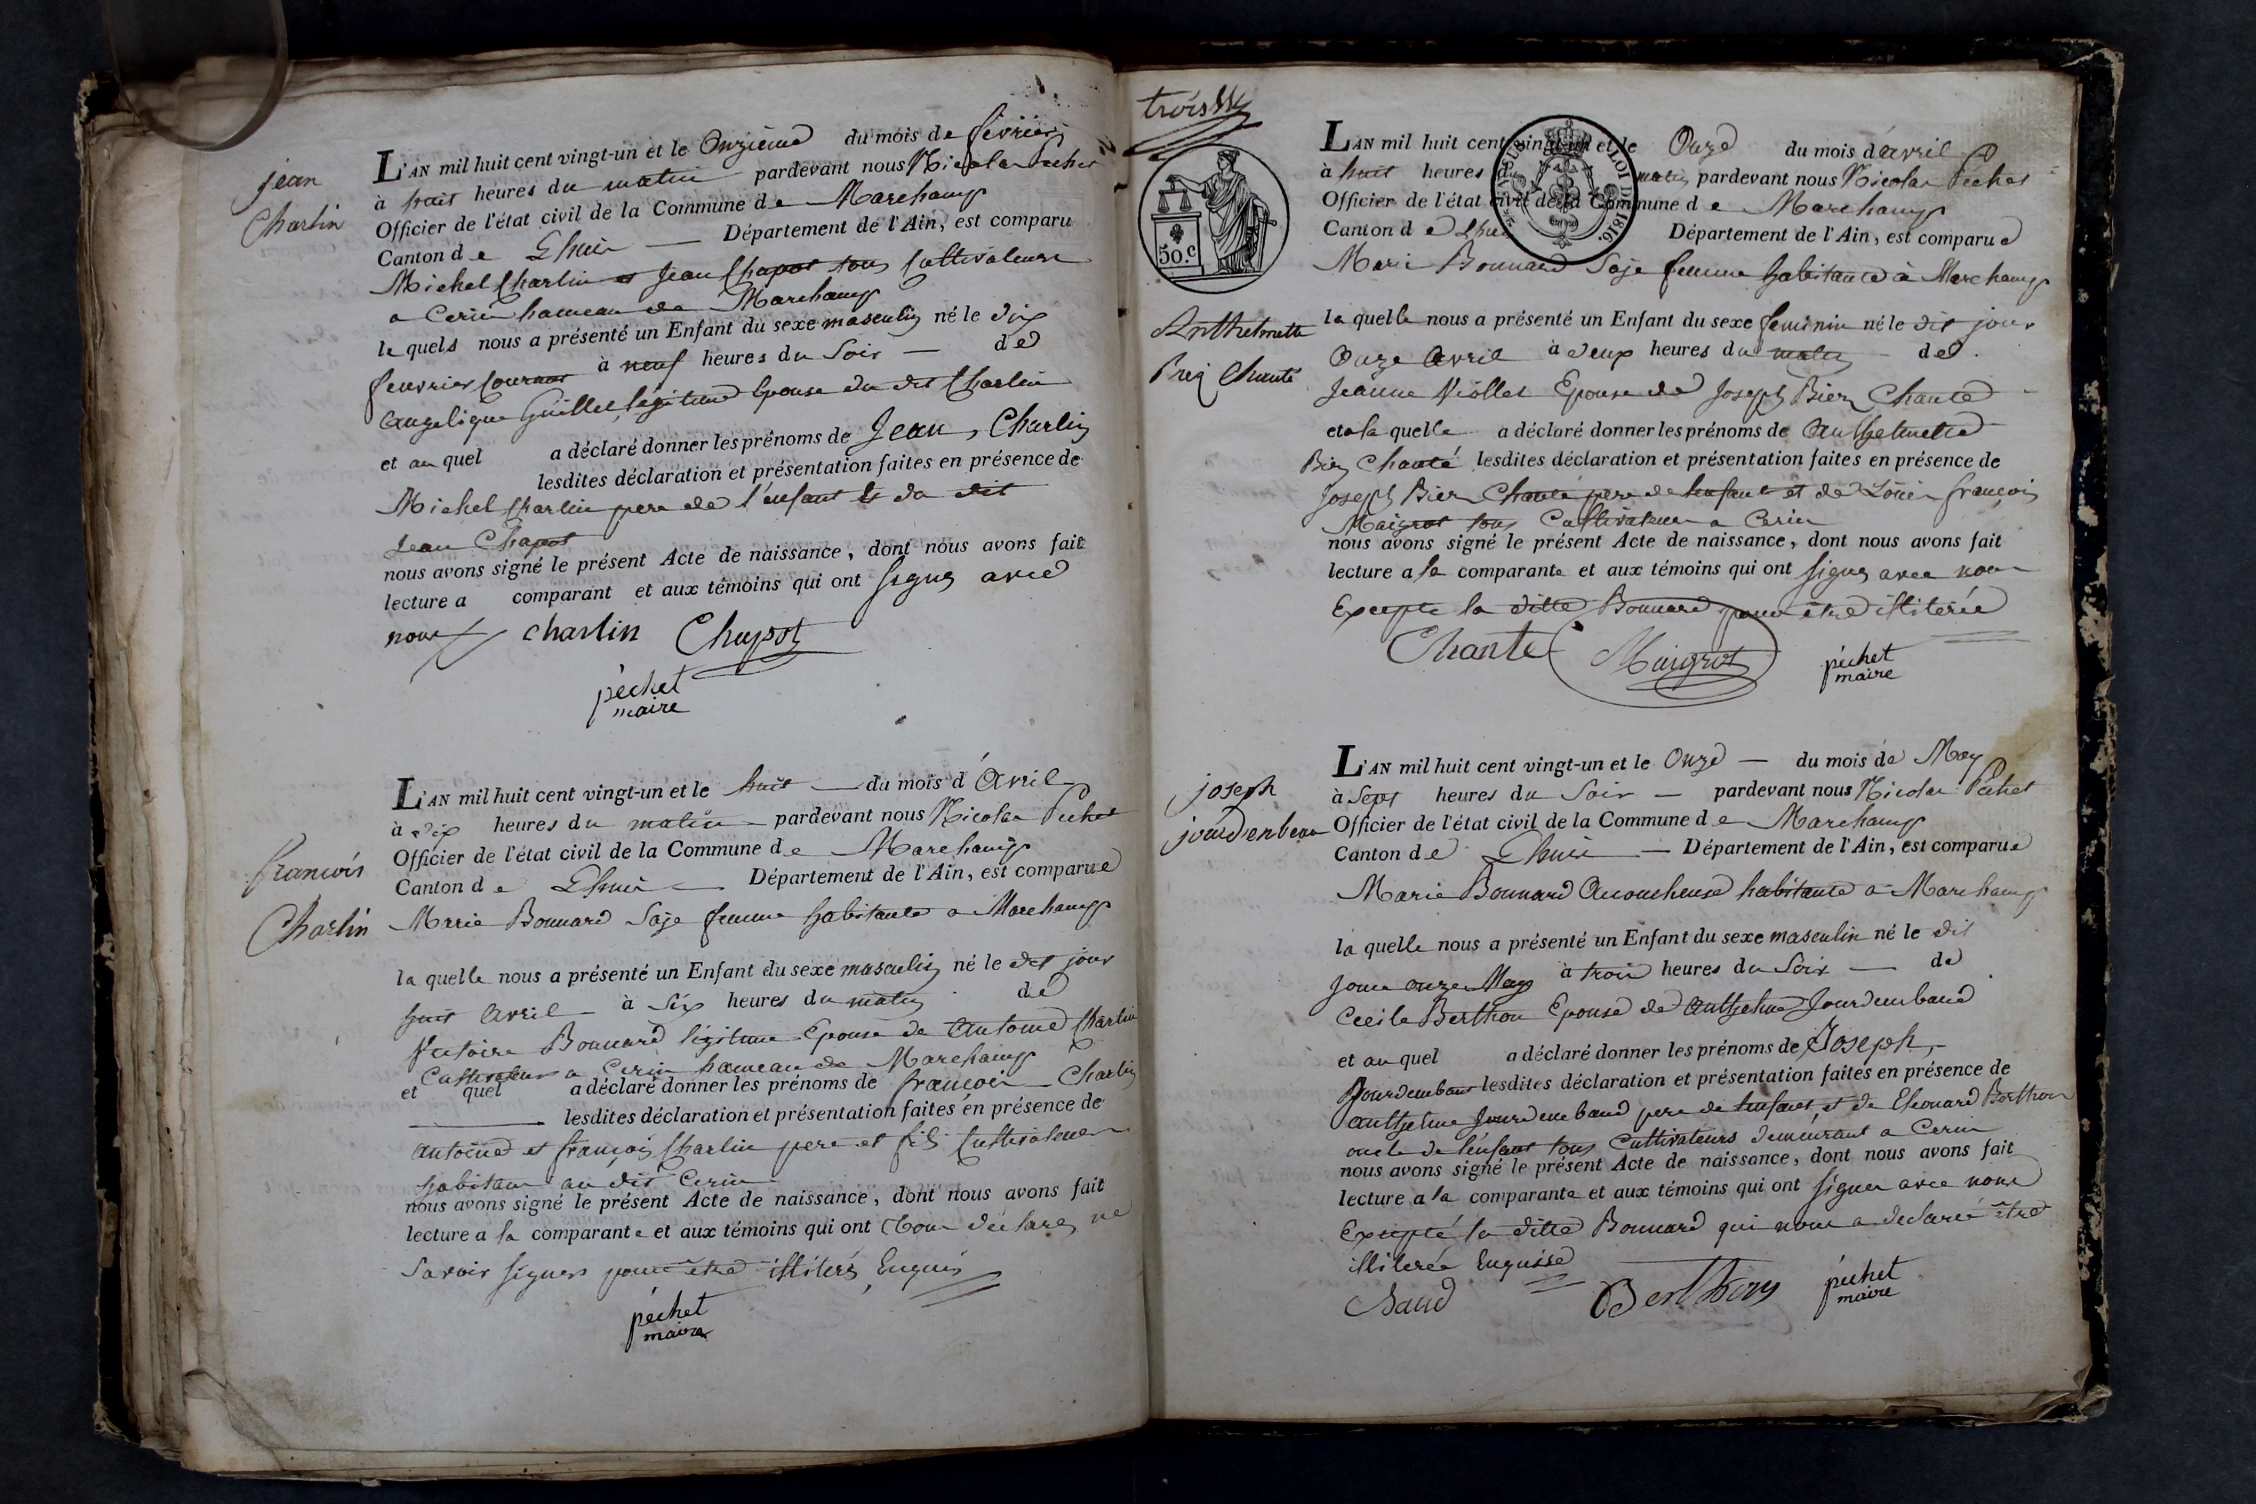 jean
Charlin
L'AN mil huit cent vingt-un et le Onzieme du mois de fevrier
à huit heures du matin pardevant nous Nicolas Pechet
Officier de l'état civil de la Commune de Marchamp
Canton de Lhuis — Département de l'Ain, est comparu
Michel Charlin et Jean Chapot tous Cultivateurs
a Cerin hameau de Marchamp
le quels nous a présenté un Enfant du sexe masculin né le dix
fevrier Courant à neuf heures du Soir — de
Angelique Guillet, légitime Epouse du dit Charlin
et au quel a déclaré donner les prénoms de Jean, Charlin
lesdites déclaration et présentation faites en présence de
Michel Charlin pere de l'enfant et du dit
Jean Chapot
nous avons signé le présent Acte de naissance, dont nous avons fait
lecture a comparant et aux témoins qui ont Signés avec
nous charlin Chapot
péchet
maire
francois
Charlin
L'AN mil huit cent vingt-un et le huit — du mois d'Avril
à dix heures du matin — pardevant nous Nicolas Pechet
Officier de l'état civil de la Commune de Marchamp
Canton de Lhuis — Département de l'Ain, est comparue
Marie Bonnard Saje femme habitante a Marchamp
la quelle nous a présenté un Enfant du sexe masculin né le dit jour
huit Avril — à Six heures du matin de
Victoire Bonnard légitime Epouse de Antoine Charlin
Cultivateur a Cerin hameau de Marchamp
et quel a déclaré donner les prénoms de françois — Charlin
lesdites déclaration et présentation faites en présence de
Antoine et françois Charlin pere et fils Cultivateurs
habitans au dit Cerin
nous avons signé le présent Acte de naissance, dont nous avons fait
lecture a la comparante et aux témoins qui ont tous déclarés ne
Savoir Signer pour être illiterés, Enquis
péchet
maire
trois
50.c
LOI DE 1816
Anthelmette
Bieq Chanté
L'AN mil huit cent vingt-un et le Onze du mois d'avril
à huit heures du matin pardevant nous Nicolas Pechet
Officier de l'état civil de la Commune de Marchamp
Canton de Lhuis Département de l'Ain, est comparue
Marie Bonnard Saje femme habitante à Marchamp
la quelle nous a présenté un Enfant du sexe feminin né le dit jour
Onze Avril à deux heures du matin — de
Jeanne Viollet Epouse de Joseph Bien Chante
et a la quelle a déclaré donner les prénoms de Anthelmette
Bien Chanté lesdites déclaration et présentation faites en présence de
Joseph Bien Chanté pere de lenfant et de Loüis françois
Maigrot tous Cultivateurs a Cerin
nous avons signé le présent Acte de naissance, dont nous avons fait
lecture a la comparante et aux témoins qui ont Signés avec nous
Excepté la ditte Bonnard pour être illiterée
Chante Maigrot péchet
maire
joseph
jourdenbeau
L'AN mil huit cent vingt-un et le Onze — du mois de May
à Sept heures du Soir — pardevant nous Nicolas Pechet
Officier de l'état civil de la Commune de Marchamp
Canton de Lhuis — Département de l'Ain, est comparue
Marie Bonnard Acoucheuse habitante a Marchamp
la quelle nous a présenté un Enfant du sexe masculin né le dit
Jour onze May à trois heures du Soir — de
Cecile Berthon Epouse de Anthelme Jourdembaud
et au quel a déclaré donner les prénoms de Joseph,
Jourdembaud lesdites déclaration et présentation faites en présence de
Anthelme Jourdembaud pere de lenfant, et de Eleonard Berthon
oncle de l'enfant tous Cultivateurs demeurant a Cerin
nous avons signé le présent Acte de naissance, dont nous avons fait
lecture a la comparante et aux témoins qui ont Signer avec nous
Excepté la ditte Bonnard qui nous a declarée être
illiterée Enquisse
Baud Berthon péchet
maire